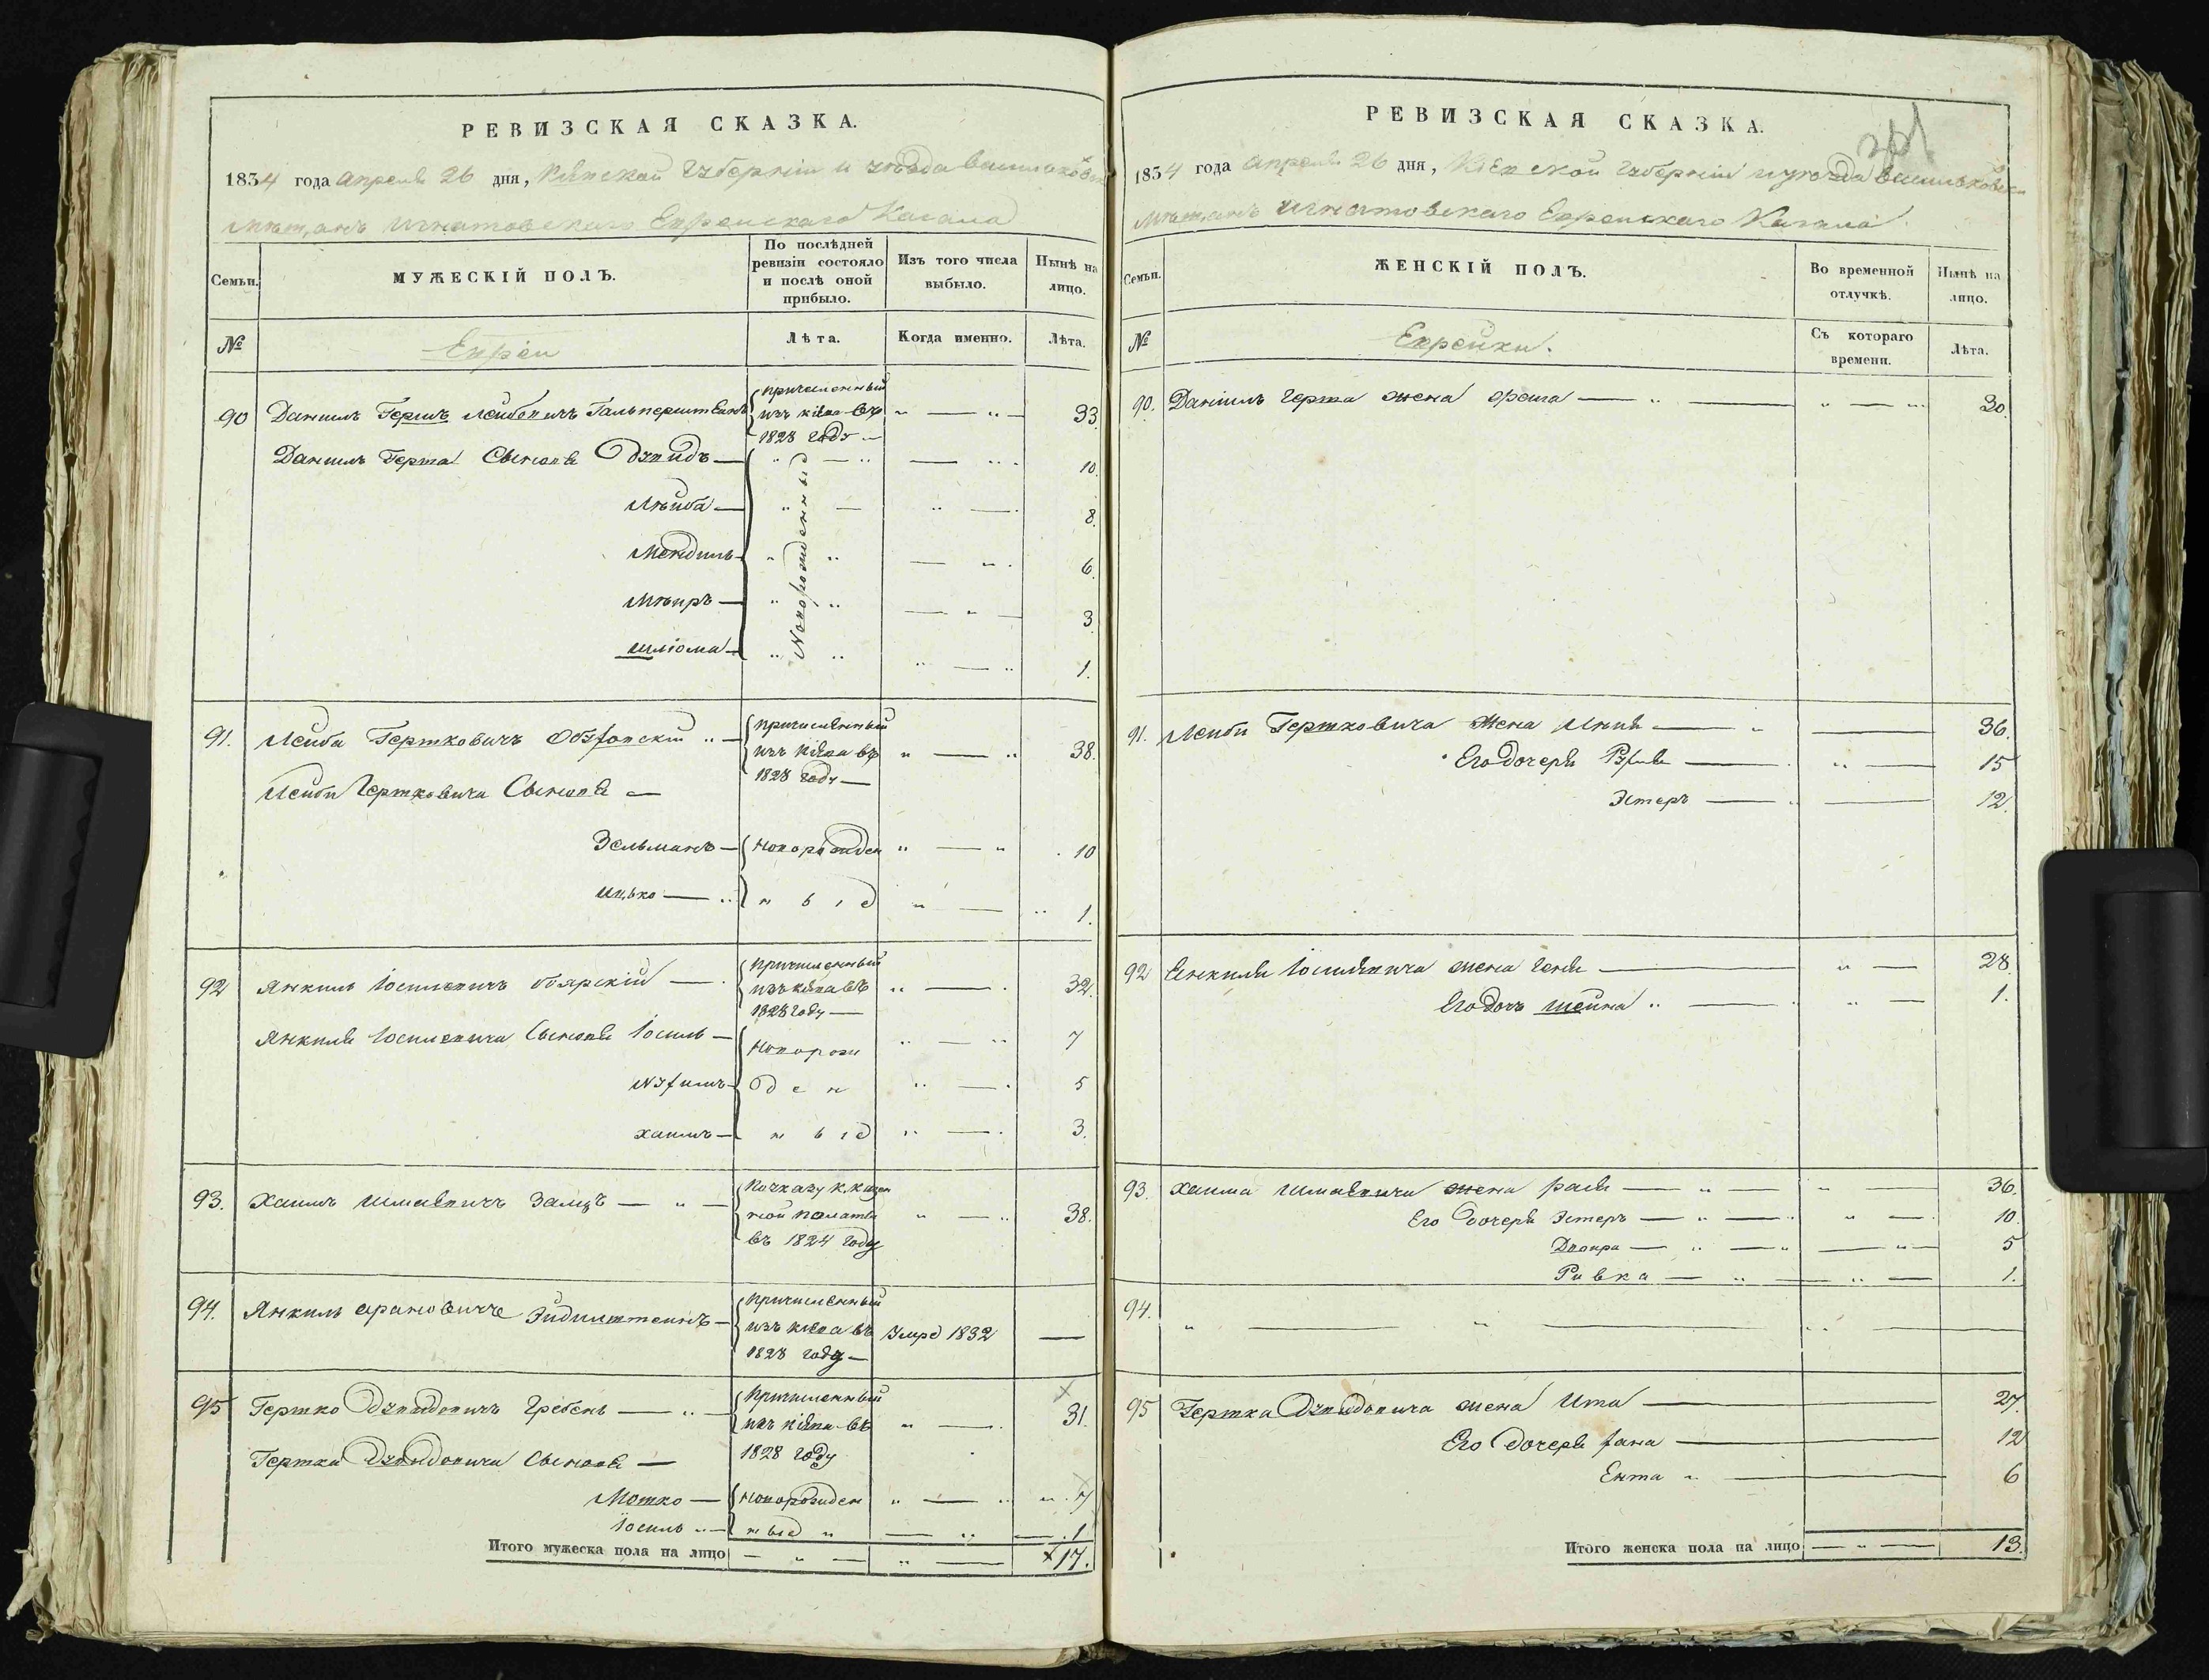 РЕВИЗСКАЯ СКАЗКА.
1834 года Апреля 26 дня, Кіевской Губерніи и уѣзда Васильков
мѣщанъ Игнатовскаго Еврейскаго Кагала
Семьи.
МУЖЕСКІЙ ПОЛЪ.
По послѣдней ревизіи состояло и послѣ оной прибыло.
Изъ того числа выбыло.
Нынѣ на лицо.
№
Евреи
Лѣта.
Когда именно.
Лѣта.
90 Даниль Гершъ Лейбовичъ Гальперштейнъ причисленный изъ Кіева въ 1828 году 33.
Даниль Герша Сыновья Дувидъ 10
Лѣйба 8.
Мендиль 6.
Мѣиръ 3
Шліома 1.
Новорожденныи
91. Лейба Гершковичъ причисленный изъ Кіева въ 1828 году 38.
Лейби Гершковича Сыновья
Зельманъ новорожден 10
Ицько ныіе 1.
92 Янкиль Іосилевичъ боярскій причисленный изъ Кіева въ 1828 году 32.
Янкиля Іосилевича Сыновья Іосиль новорож 7
ден 5
Хаимъ ныіе 3.
93. Хаимъ Шмаевичъ Залцъ По указу К. казенной палаты въ 1824 году 38.
94. Янкиль Ароновичъ Зидиштейнъ причисленный изъ Кіева въ 1828 году Умре 1832 —
95 Гершко Дувидовичъ Гребень причисленный изъ Кіева въ 1828 году 31.
Гершка Дувидовича Сыновья
Мошко новорожден 7
Іосиль ные 1
Итого мужеска пола на лицо 17.
РЕВИЗСКАЯ СКАЗКА.
1834 года Апреля 26 дня, Кіевской Губерніи и уѣзда Васильковск
Мѣщанъ Игнатовскаго Еврейскаго Кагала.
Семьи.
ЖЕНСКІЙ ПОЛЪ.
Во временной отлучкѣ.
Нынѣ на лицо.
№
Еврейки.
Съ котораго времени.
Лѣта.
90. Даніилъ Герша жена Фрейга 30.
91. Лейби Гершковича Жена 36.
Его дочери 15
Эстеръ 12.
92 Янкиля Іосилевича жена Геня 28.
Его дочь Шейна 1.
93. Хаима Шмаевича жена рася 36.
Его дочери Эстеръ 10.
Двойра 5
Ривка 1.
94.
95 Гершка Дувидовича жена Ита 27.
Его дочери хана 12
Ента 6
Итого женска пола на лицо 13.